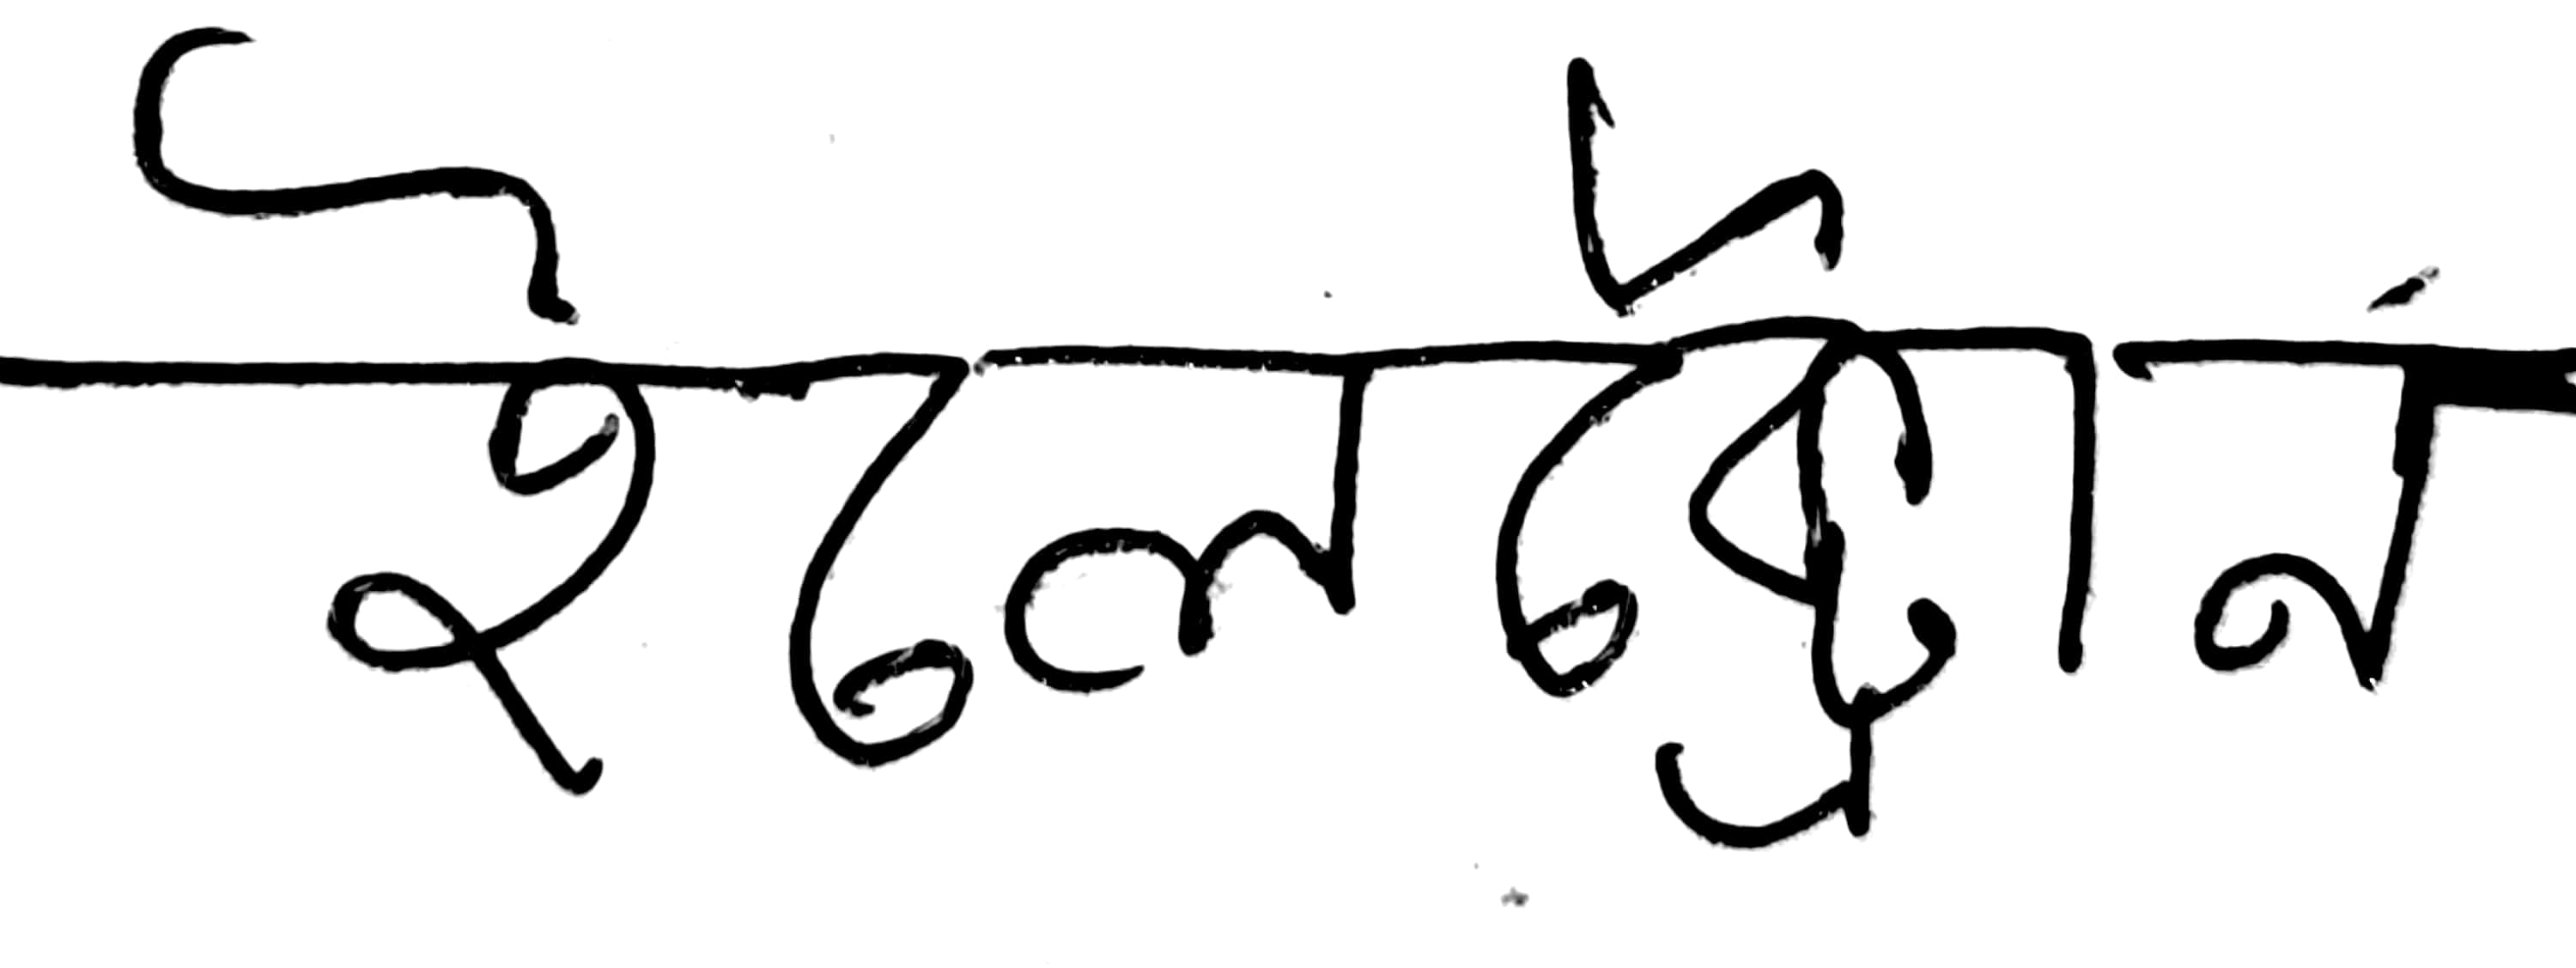 ইলেকট্রোন